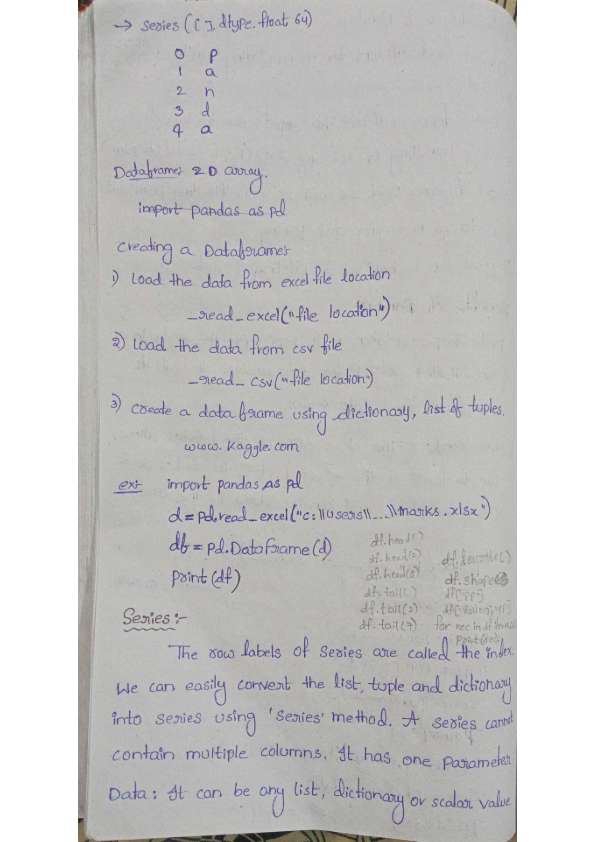 → Series ([ ], dtype. float 64)
0 p
1 a
2 n
3 d
4 a
Dataframe: 2D array.
import pandas as pd
Creating a Dataframe:
1) Load the data from excel file location
_read_excel("file location")
2) Load the data from csv file
_read_csv("file location")
3) Create a data frame using dictionary, list of tuples.
www.kaggle.com
ex:- import pandas as pd
d = pd.read_excel("c:\\users\\...\\marks.xlsx")
df = pd.DataFrame(d)
print(df)
df.head()
df.head(2)
df.head(5)
df.tail()
df.tail(3)
df.tail(7)
df.shape
for rec in df
Series:-
The row labels of series are called the index.
We can easily convert the list, tuple and dictionary
into series using 'series' method. A series cannot
contain multiple columns. It has one parameter
Data: It can be any list, dictionary or scalar value